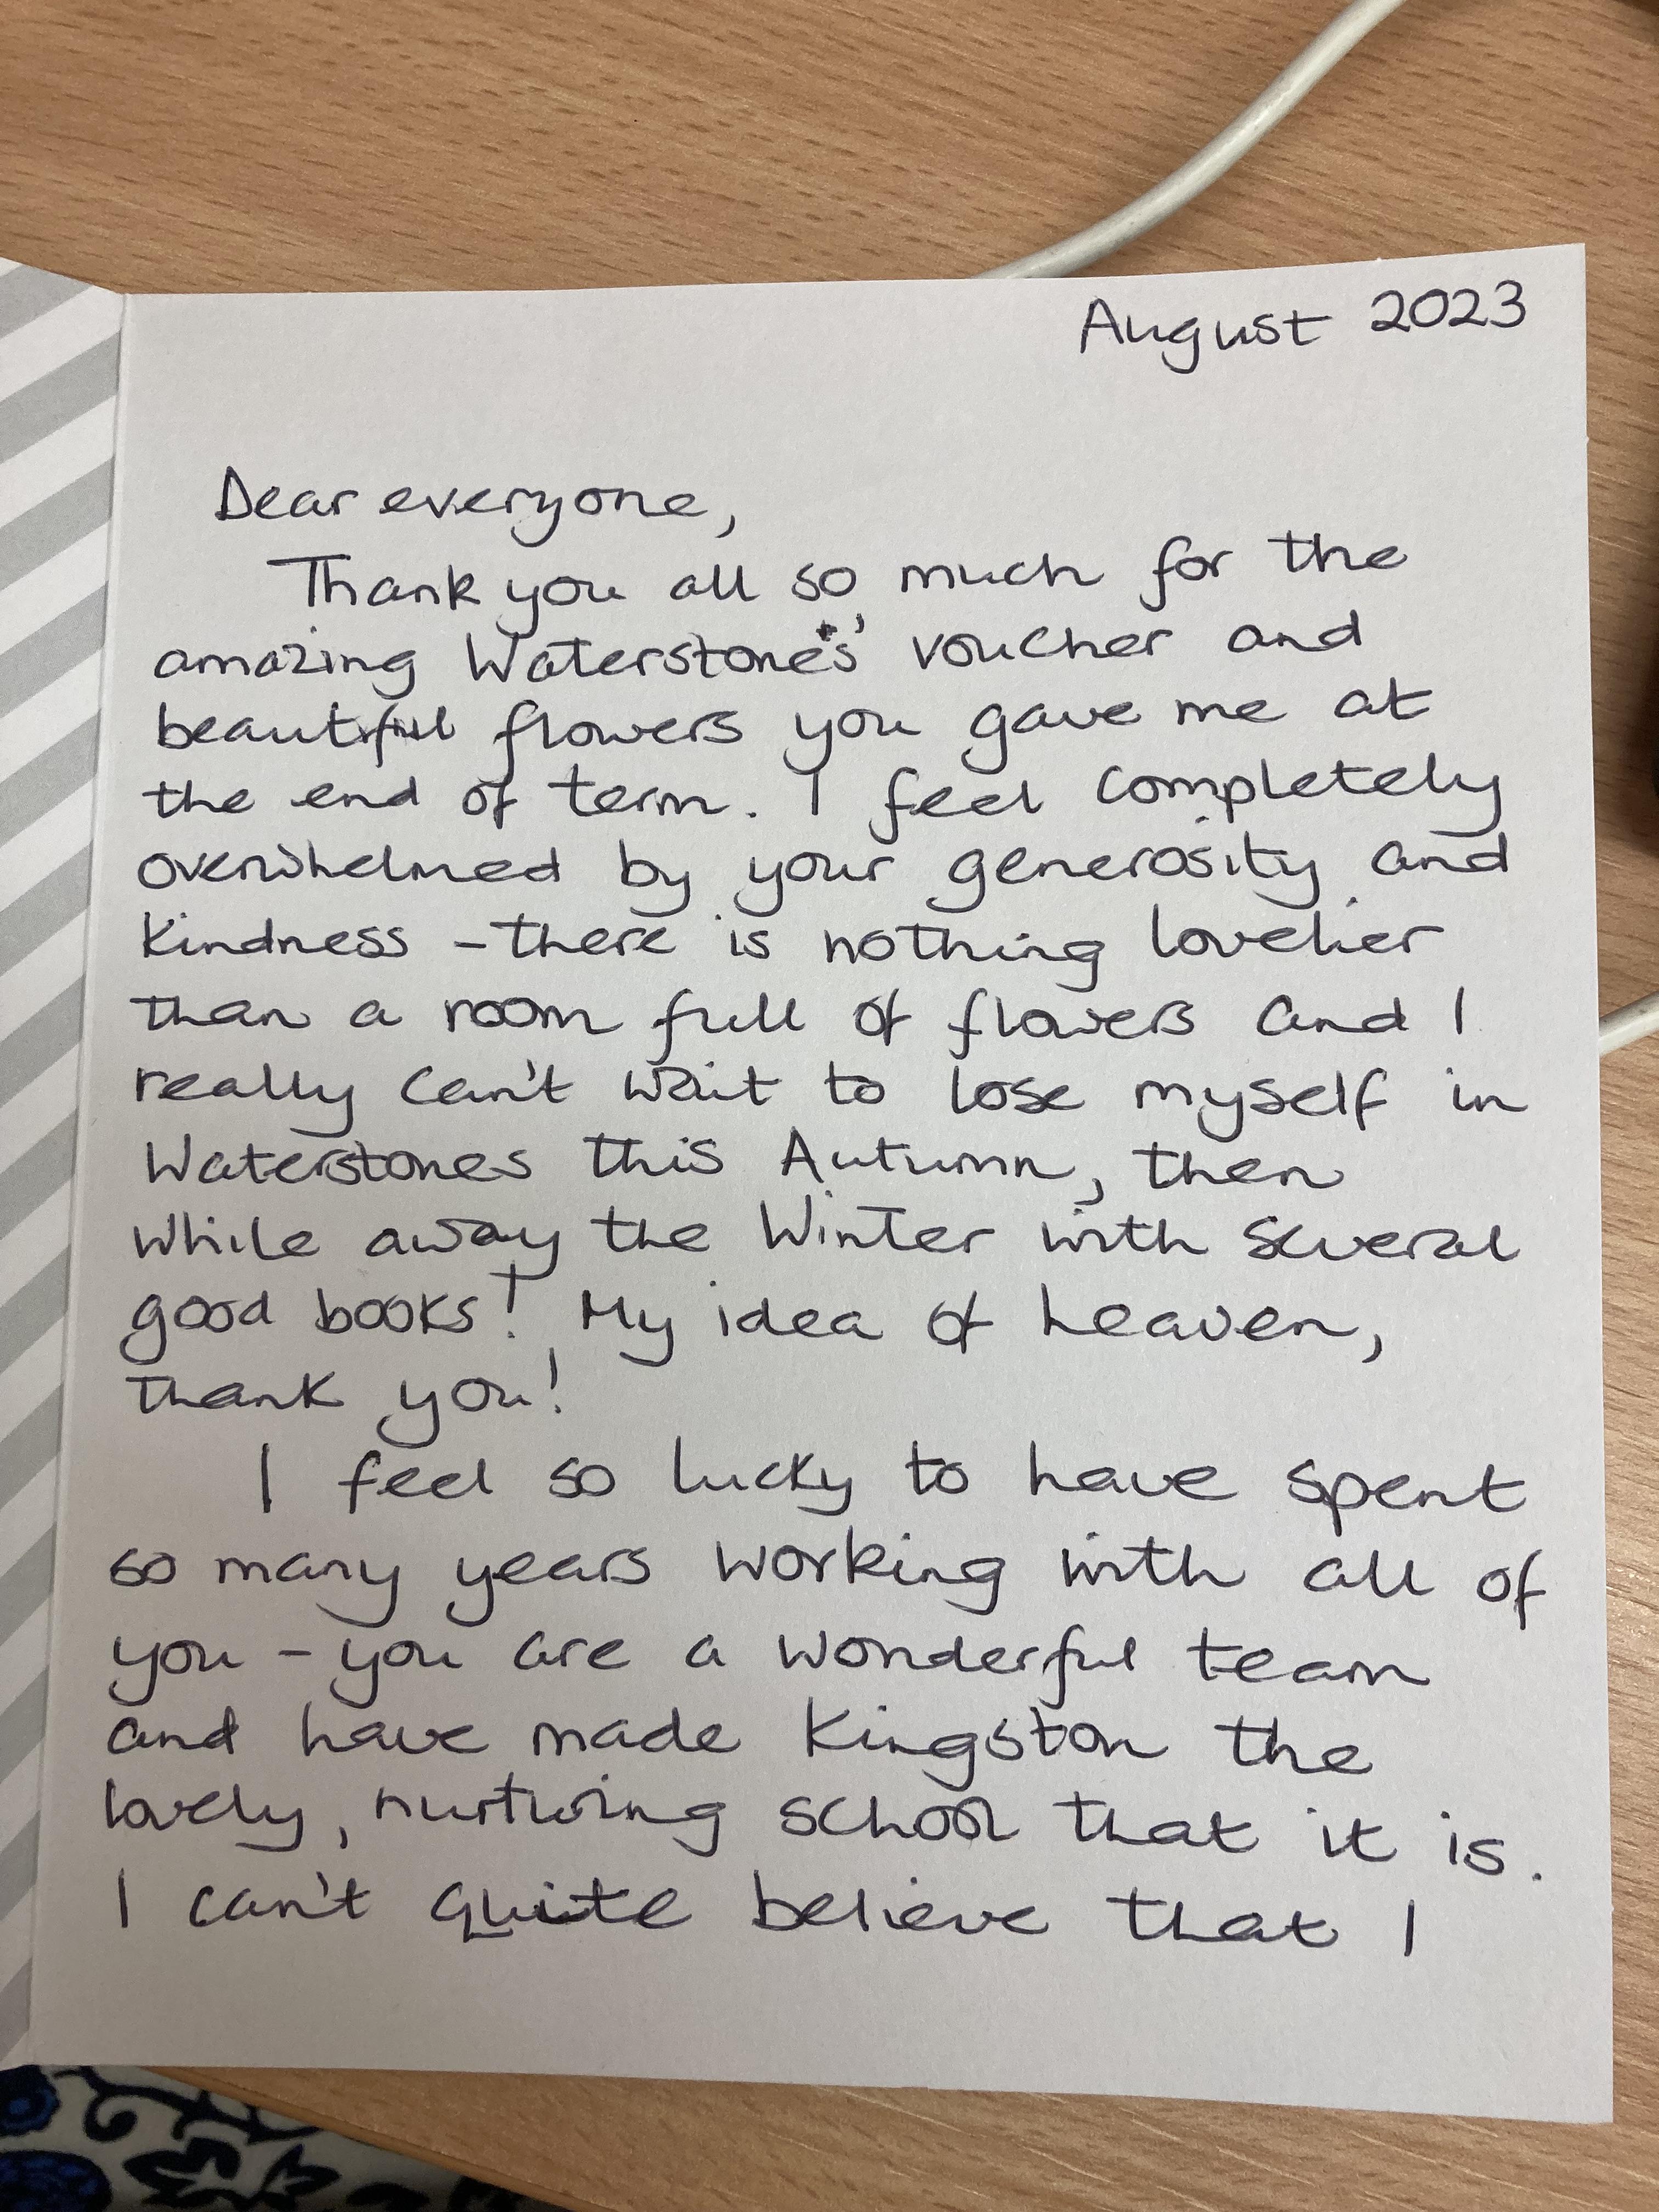 August 2023
Dear everyone,
Thank you all so much for the
amazing Waterstones' voucher and
beautiful flowers you gave me at
the end of term. I feel completely
overwhelmed by your generosity and
kindness - there is nothing lovelier
than a room full of flowers and I
really can't wait to lose myself in
Waterstones this Autumn, then
while away the Winter with several
good books! My idea of heaven,
thank you!
I feel so lucky to have spent
so many years working with all of
you - you are a wonderful team
and have made Kingston the
lovely, nurturing school that it is.
I can't quite believe that I